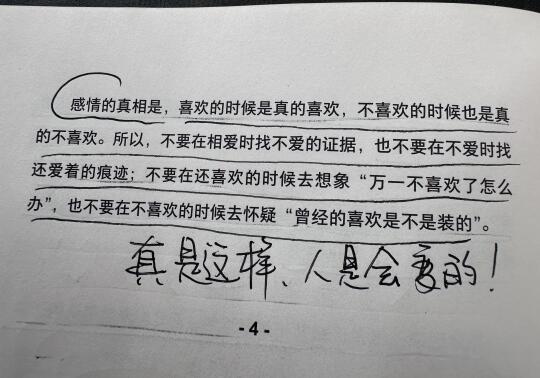 感情的真相是，喜欢的时候是真的喜欢，不喜欢的时候也是真
的不喜欢。所以，不要在相爱时找不爱的证据，也不要在不爱时找
还爱着的痕迹；不要在还喜欢的时候去想象“万一不喜欢了怎么
办”，也不要在不喜欢的时候去怀疑“曾经的喜欢是不是装的”。
真是这样、人是会变的！
- 4 -